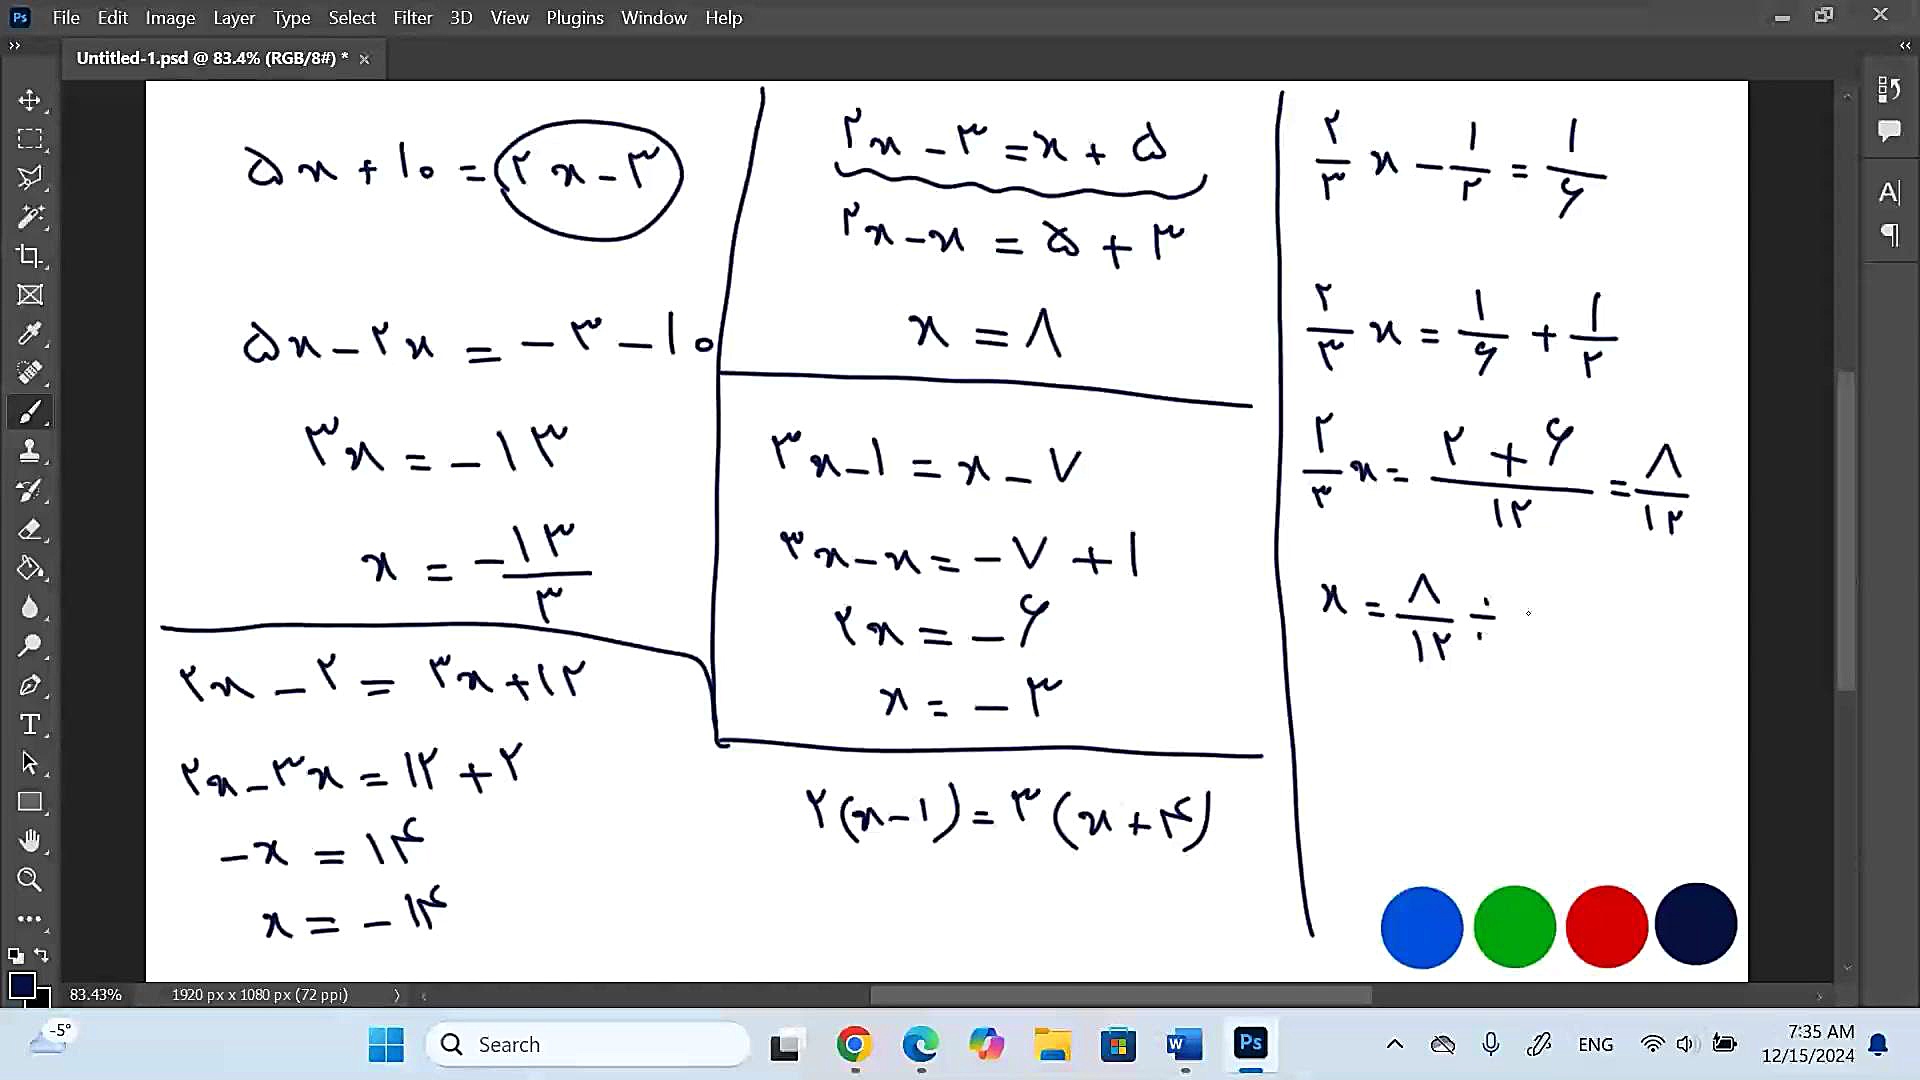 File Edit Image Layer Type Select Filter 3D View Plugins Window Help
Untitled-1.psd @ 83.4% (RGB/8#) *
۵x + ۱۰ = ۲x - ۳
۵x - ۲x = -۳ - ۱۰
۳x = -۱۳
x = -۱۳/۳
۲x - ۲ = ۳x + ۱۲
۲x - ۳x = ۱۲ + ۲
-x = ۱۴
x = -۱۴
۲x - ۳ = x + ۵
۲x - x = ۵ + ۳
x = ۸
۳x - ۱ = x - ۷
۳x - x = -۷ + ۱
۲x = -۶
x = -۳
۲(x - ۱) = ۳(x + ۴)
۲/۳ x - ۱/۲ = ۱/۶
۲/۳ x = ۱/۶ + ۱/۲
۲/۳ x = ۲ + ۶/۱۲ = ۸/۱۲
x = ۸/۱۲ ÷
83.43% 1920 px x 1080 px (72 ppi)
-5°
Search
ENG
7:35 AM
12/15/2024